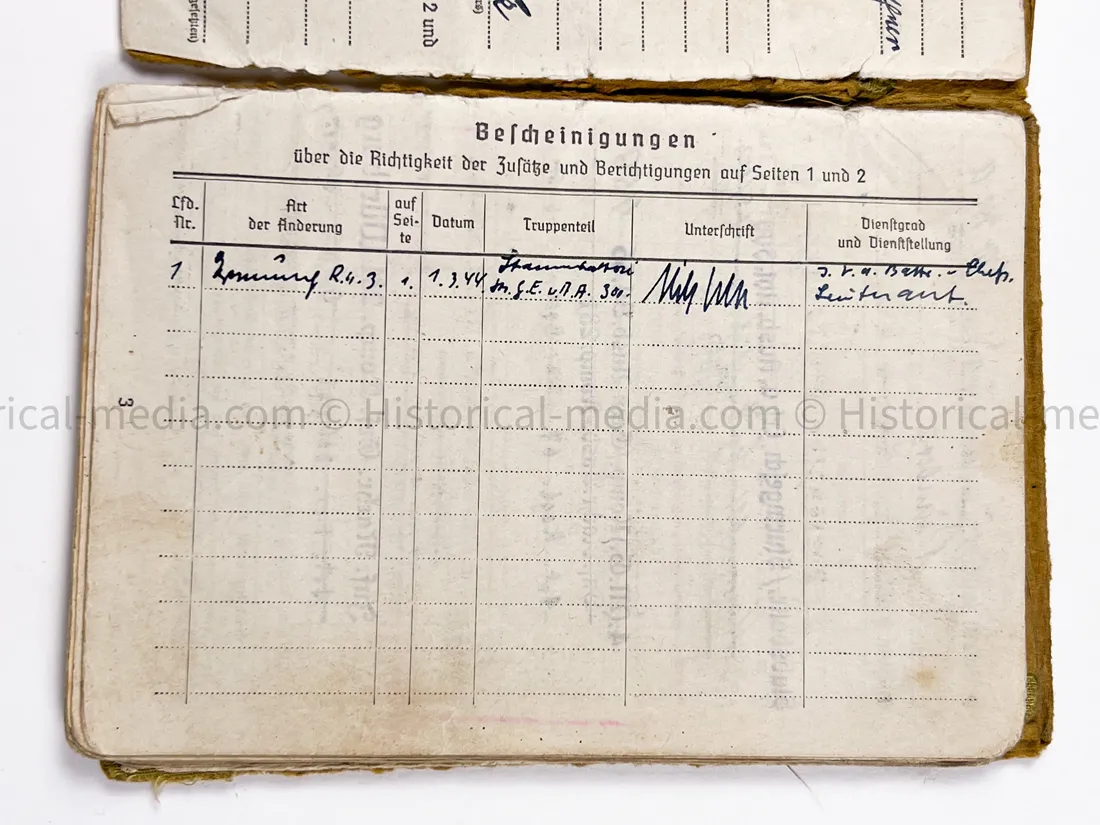 gelepten)
2 und
Bescheinigungen
über die Richtigkeit der Zusätze und Berichtigungen auf Seiten 1 und 2
Lfd. Nr.
Art der Änderung
auf Sei- te
Datum
Truppenteil
Unterschrift
Dienstgrad und Dienststellung
1
R.u.3.
1.
1.3.44
Stammbatterie
E. u. A. A. 300.
J. V. d. Battr. - Chefs.
Leutnant.
3
rical-media.com © Historical-media.com © Historical-me